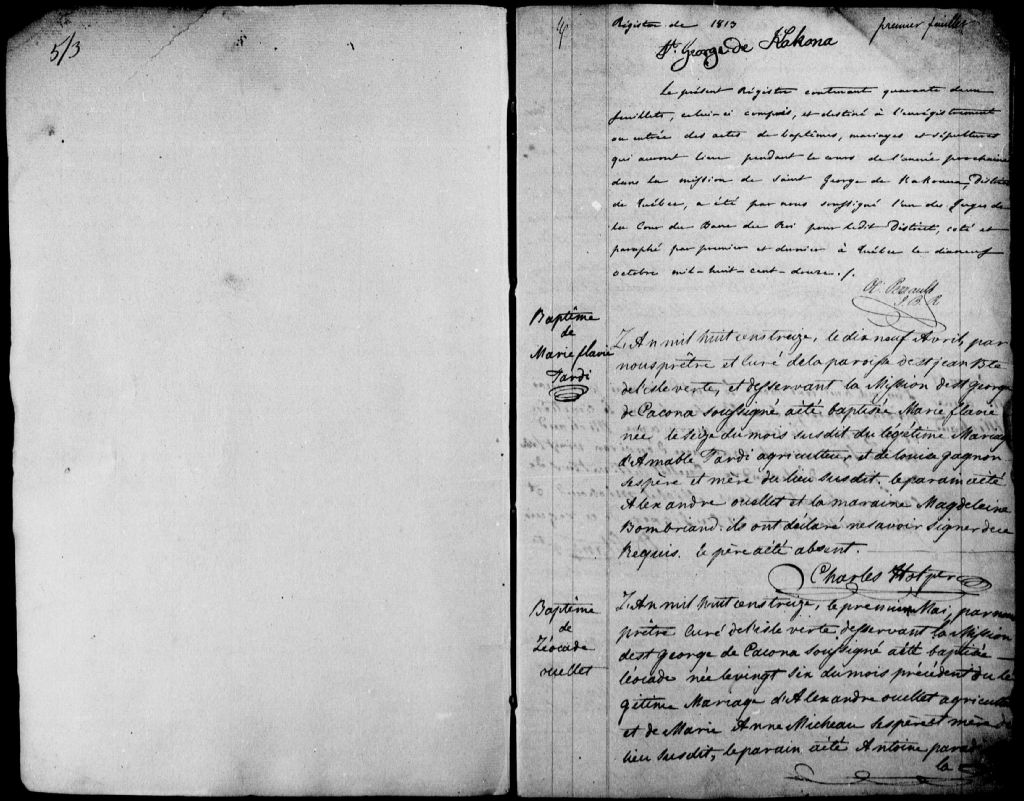 5/3
Régistre de 1813
premier feuillet
St. George de Kakona
Le présent Régistre contenant quarante deux
feuillets, celui-ci compris, et destiné à l'enrégistrement
ou entrée des actes de baptêmes, mariages et sépultures
qui auront lieu pendant le cours de l'année prochaine
dans la mission de Saint George de Kakouna, District
de Québec, a été par nous soussigné l'un des Juges de
la Cour du Banc du Roi pour ledit District, coté et
paraphé par premier et dernier à Québec le dixneuf
octobre mil-huit-cent-douze ./.
Ol. Perrault
J. B. R
Baptême
de
Marie flavie
Tardi
L'An mil huit cens treize, le dix neuf Avril, par
nous prêtre et Curé de la paroisse de st jean Bte
de l'isle verte, et desservant la Mission de st george
de Cacona soussigné a été baptisée Marie flavie
née le seize du mois susdit du légitime Mariage
d'Amable Tardi agriculteur, et de louise gagnon
ses père et mère du lieu susdit. le parain a été
Alexandre ouellet et la maraine Magdeleine
Bombriand. ils ont déclaré ne savoir signer de ce
Requis. le père a été absent.
Charles
Baptême
de
Léocade
ouellet
L'An mil huit cens treize, le premier Mai, par nous
prêtre Curé de l'isle verte, desservant la Mission
de st george de Cacona soussigné a été baptisée
léocade née le vingt six du mois précédent du lé
gétime Mariage d'Alexandre ouellet agriculteur
et de Marie Anne Micheau ses père et mère du
lieu susdit, le parain a été Antoine
la